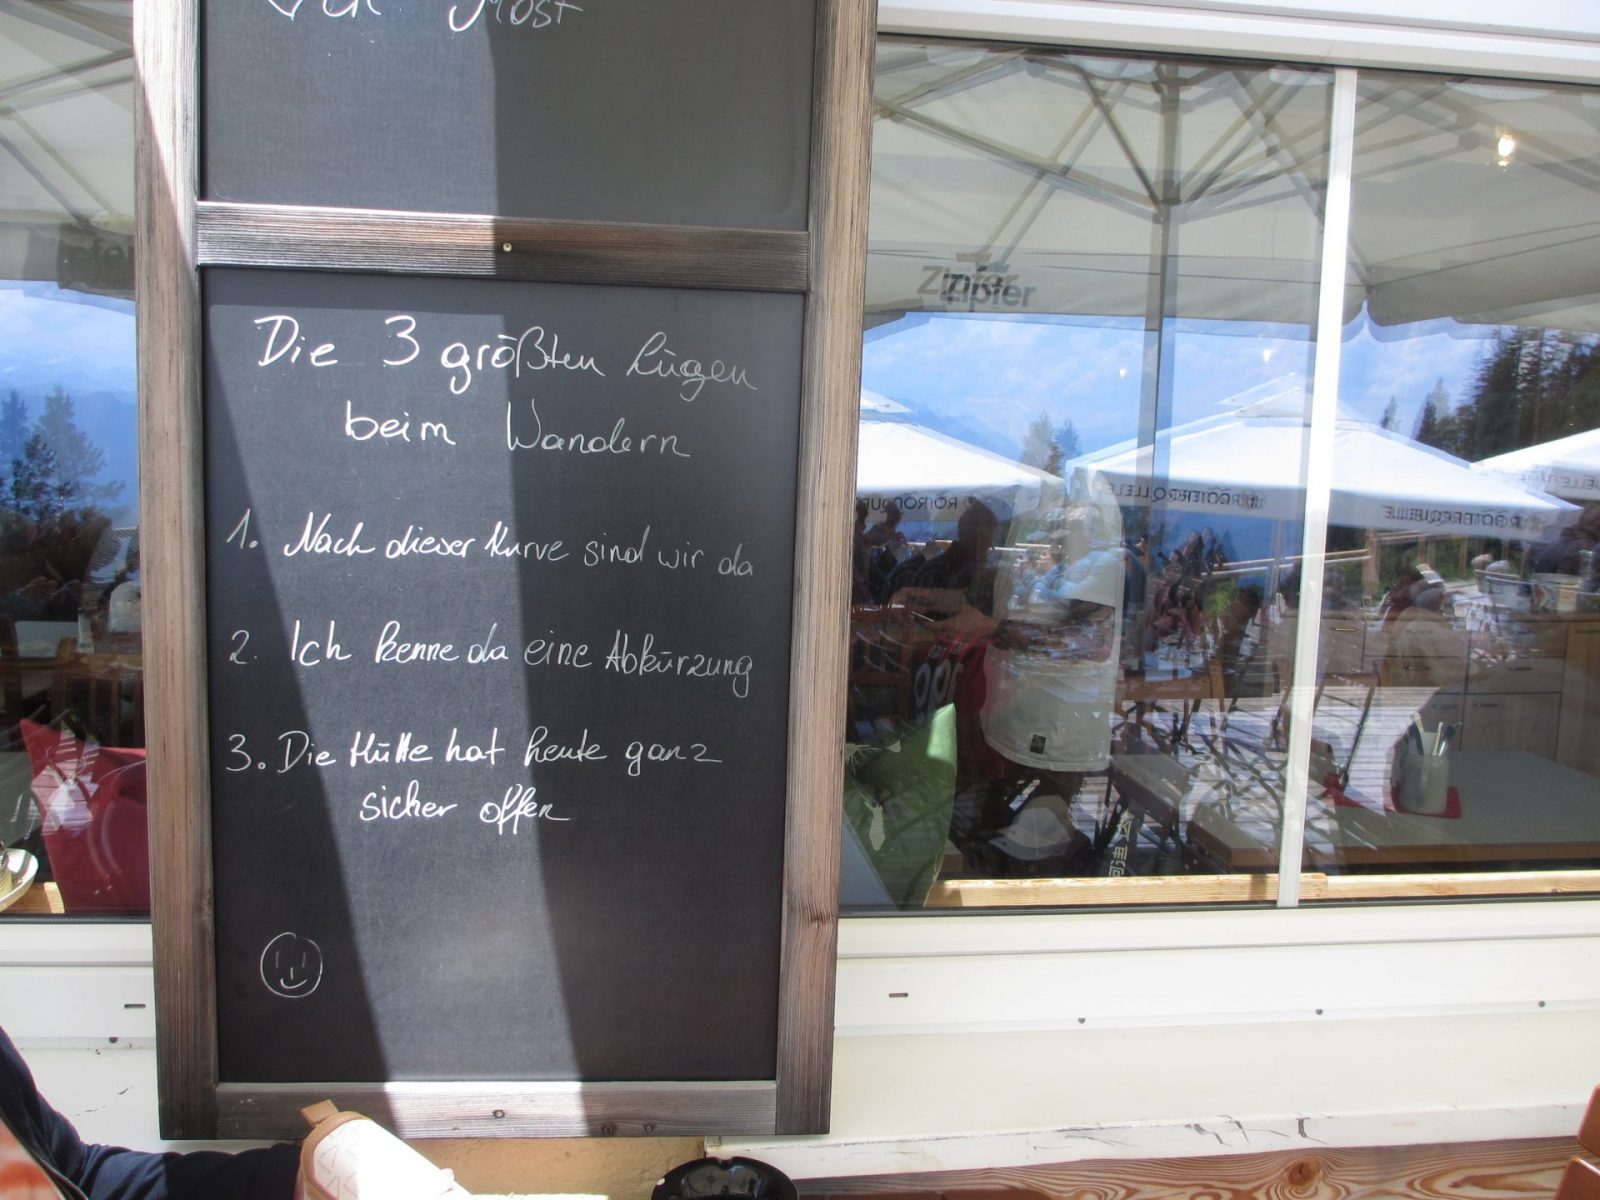 Most
Die 3 größten Lügen
beim Wandern
1. Nach dieser Kurve sind wir da
2. Ich kenne da eine Abkürzung
3. Die Hütte hat heute ganz
sicher offen
Zipfer